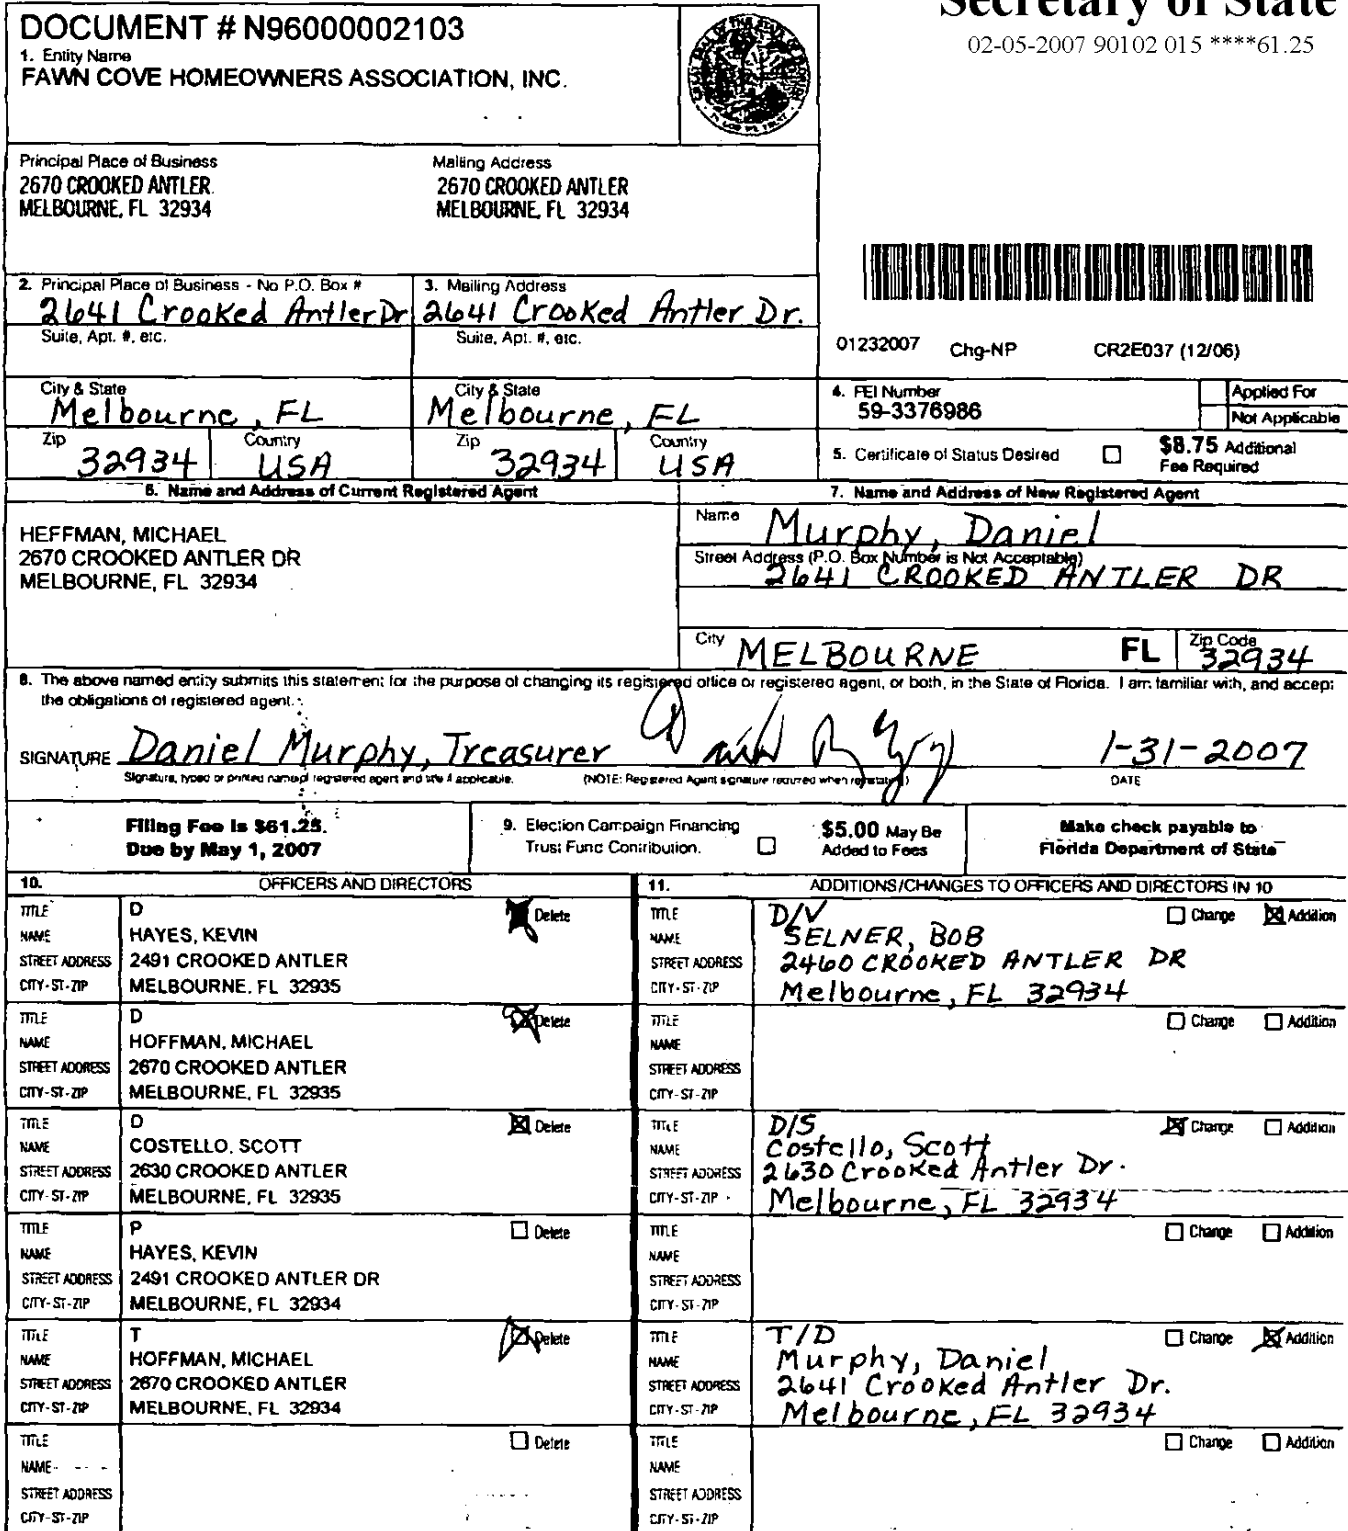 Secretary of State
02-05-2007 90102 015 ****61.25
DOCUMENT # N96000002103
1. Entity Name
FAWN COVE HOMEOWNERS ASSOCIATION, INC.
Principal Place of Business
2670 CROOKED ANTLER
MELBOURNE, FL 32934
Mailing Address
2670 CROOKED ANTLER
MELBOURNE, FL 32934
2. Principal Place of Business - No P.O. Box #
2641 Crooked Antler Dr
Suite, Apt. #, etc.
City & State
Melbourne, FL
Zip
32934
Country
USA
3. Mailing Address
2641 Crooked Antler Dr.
Suite, Apt. #, etc.
City & State
Melbourne, FL
Zip
32934
Country
USA
01232007 Chg-NP CR2E037 (12/06)
4. FEI Number
59-3376986
Applied For
Not Applicable
5. Certificate of Status Desired
$8.75 Additional
Fee Required
6. Name and Address of Current Registered Agent
HEFFMAN, MICHAEL
2670 CROOKED ANTLER DR
MELBOURNE, FL 32934
7. Name and Address of New Registered Agent
Name Murphy, Daniel
Street Address (P.O. Box Number is Not Acceptable)
2641 CROOKED ANTLER DR
City MELBOURNE FL Zip Code 32934
8. The above named entity submits this statement for the purpose of changing its registered office or registered agent, or both, in the State of Florida. I am familiar with, and accept
the obligations of registered agent.
SIGNATURE Daniel Murphy, Treasurer 1-31-2007
Signature, typed or printed name of registered agent and title if applicable. (NOTE: Registered Agent signature required when reinstating) DATE
Filing Fee is $61.25.
Due by May 1, 2007
9. Election Campaign Financing
Trust Fund Contribution.
$5.00 May Be
Added to Fees
Make check payable to
Florida Department of State
10. OFFICERS AND DIRECTORS
TITLE D Delete
NAME HAYES, KEVIN
STREET ADDRESS 2491 CROOKED ANTLER
CITY-ST-ZIP MELBOURNE, FL 32935
TITLE D Delete
NAME HOFFMAN, MICHAEL
STREET ADDRESS 2670 CROOKED ANTLER
CITY-ST-ZIP MELBOURNE, FL 32935
TITLE D Delete
NAME COSTELLO, SCOTT
STREET ADDRESS 2630 CROOKED ANTLER
CITY-ST-ZIP MELBOURNE, FL 32935
TITLE P Delete
NAME HAYES, KEVIN
STREET ADDRESS 2491 CROOKED ANTLER DR
CITY-ST-ZIP MELBOURNE, FL 32934
TITLE T Delete
NAME HOFFMAN, MICHAEL
STREET ADDRESS 2670 CROOKED ANTLER
CITY-ST-ZIP MELBOURNE, FL 32934
TITLE Delete
NAME
STREET ADDRESS
CITY-ST-ZIP
11. ADDITIONS/CHANGES TO OFFICERS AND DIRECTORS IN 10
TITLE D/V Change Addition
NAME SELNER, BOB
STREET ADDRESS 2460 CROOKED ANTLER DR
CITY-ST-ZIP Melbourne, FL 32934
TITLE Change Addition
NAME
STREET ADDRESS
CITY-ST-ZIP
TITLE D/S Change Addition
NAME Costello, Scott
STREET ADDRESS 2630 Crooked Antler Dr.
CITY-ST-ZIP Melbourne, FL 32934
TITLE Change Addition
NAME
STREET ADDRESS
CITY-ST-ZIP
TITLE T/D Change Addition
NAME Murphy, Daniel
STREET ADDRESS 2641 Crooked Antler Dr.
CITY-ST-ZIP Melbourne, FL 32934
TITLE Change Addition
NAME
STREET ADDRESS
CITY-ST-ZIP